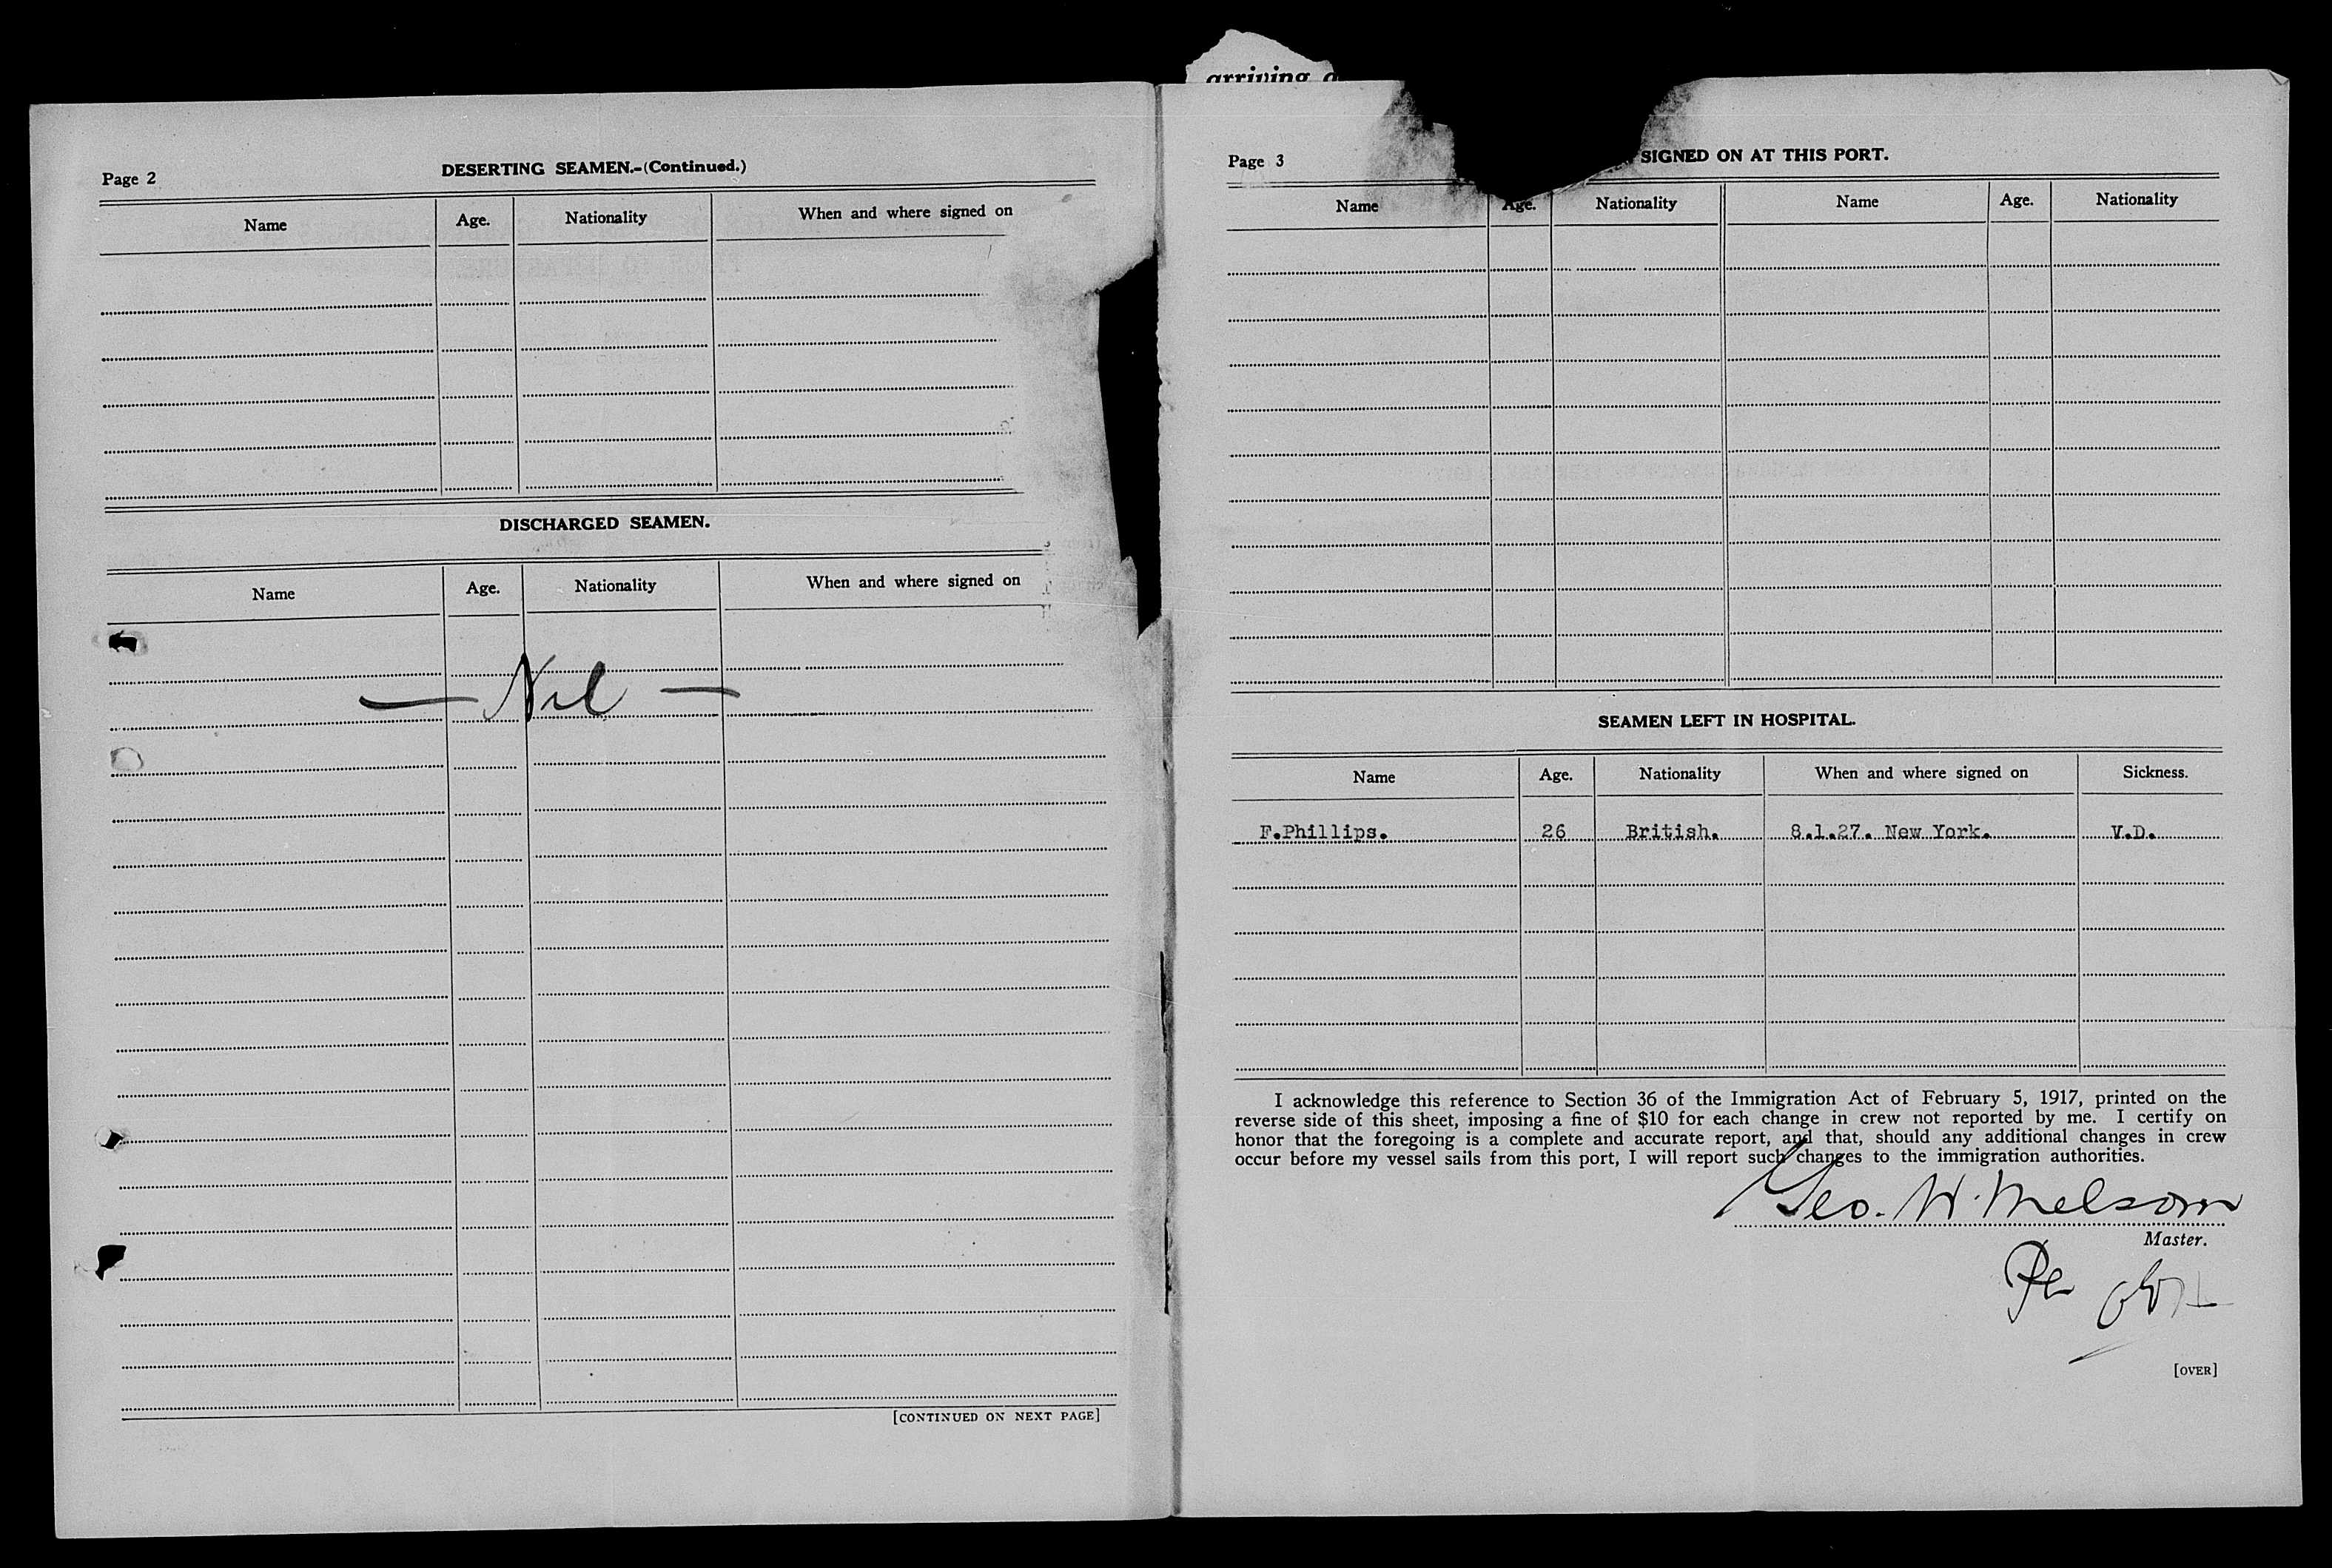 arriving
Page 2
DESERTING SEAMEN.-(Continued.)
Name Age. Nationality When and where signed on
DISCHARGED SEAMEN.
Name Age. Nationality When and where signed on
— Nil —
[CONTINUED ON NEXT PAGE]
Page 3
SIGNED ON AT THIS PORT.
Name Age. Nationality Name Age. Nationality
SEAMEN LEFT IN HOSPITAL.
Name Age. Nationality When and where signed on Sickness.
F.Phillips. 26 British. 8.1.27. New York. V.D.
I acknowledge this reference to Section 36 of the Immigration Act of February 5, 1917, printed on the
reverse side of this sheet, imposing a fine of $10 for each change in crew not reported by me. I certify on
honor that the foregoing is a complete and accurate report, and that, should any additional changes in crew
occur before my vessel sails from this port, I will report such changes to the immigration authorities.
Geo. W. Melsom
Master.
Per
[OVER]